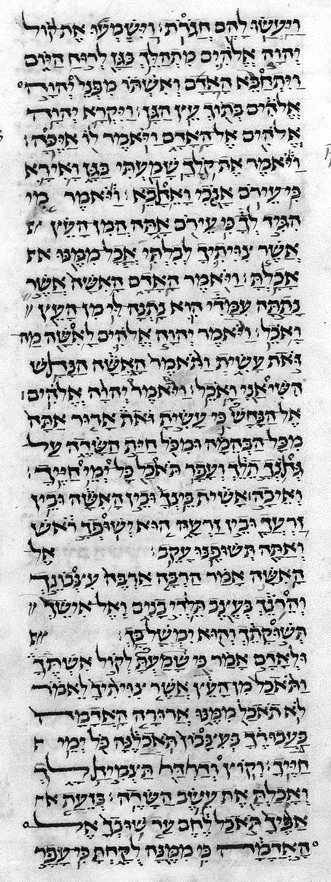 ויעשו להם חגרת: וישמעו את קול
יהוה אלהים מתהלך בגן לרוח היום
ויתחבא האדם ואשתו מפני יהוה
אלהים בתוך עץ הגן: ויקרא יהוה
אלהים אל האדם ויאמר לו איכה:
ויאמר את קלך שמעתי בגן ואירא
כי עירם אנכי ואחבא: ויאמר מי
הגיד לך כי עירם אתה המן העץ
אשר צויתיך לבלתי אכל ממנו
אכלת: ויאמר האדם האשה אשר
נתתה עמדי הוא נתנה לי מן העץ
ואכל: ויאמר יהוה אלהים לאשה מה
זאת עשית ותאמר האשה הנחש
השיאני ואכל: ויאמר יהוה אלהים
אל הנחש כי עשית זאת ארור אתה
מכל הבהמה ומכל חית השדה על
גחנך תלך ועפר תאכל כל ימי חייך:
ואיבה אשית בינך ובין האשה ובין
זרעך ובין זרעה הוא ישופך ראש
ואתה תשופנו עקב: אל
האשה אמר הרבה ארבה עצבונך
והרנך בעצב תלדי בנים ואל אישך
תשוקתך והוא ימשל בך:
ולאדם אמר כי שמעת לקול אשתך
ותאכל מן העץ אשר צויתיך לאמר
לא תאכל ממנו ארורה האדמה
בעבורך בעצבון תאכלנה כל ימי
חייך: וקוץ ודרדר תצמיח לך
ואכלת את עשב השדה: בזעת
אפיך תאכל לחם עד שובך אל
האדמה כי ממנה לקחת כי עפר